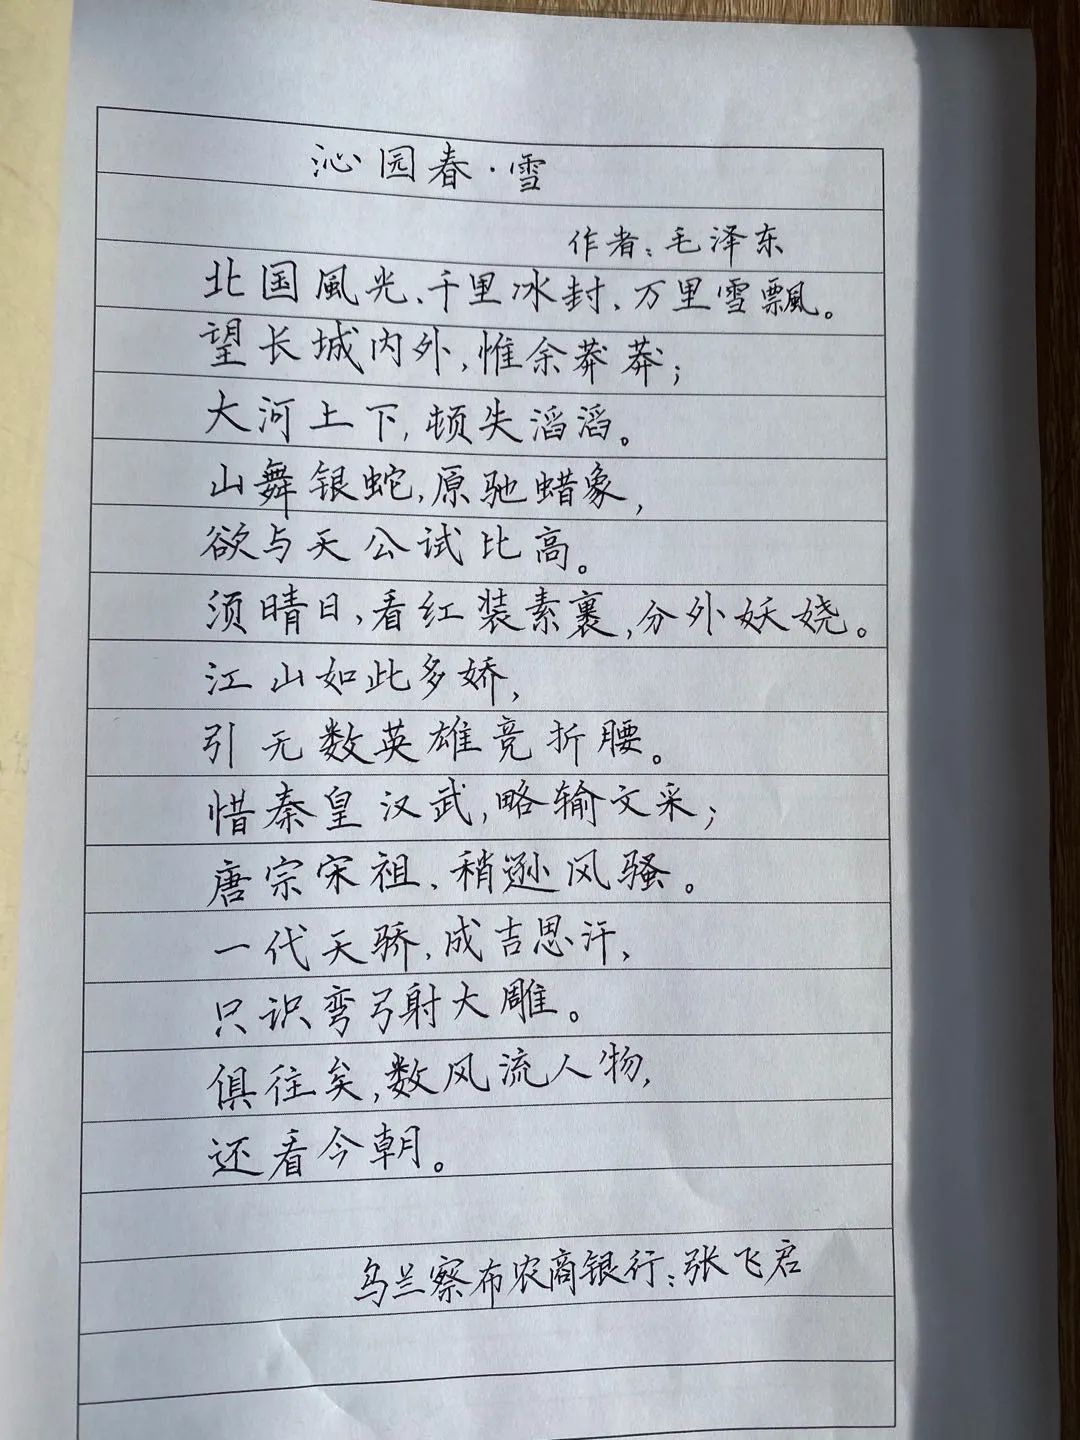 沁园春·雪
作者：毛泽东
北国風光、千里冰封、万里雪飄。
望长城内外,惟余莽莽；
大河上下,顿失滔滔。
山舞银蛇,原驰蜡象,
欲与天公试比高。
须晴日,看红装素裹,分外妖娆。
江山如此多娇,
引无数英雄竞折腰。
惜秦皇汉武,略输文采；
唐宗宋祖、稍逊风骚。
一代天骄,成吉思汗,
只识弯弓射大雕。
俱往矣,数风流人物,
还看今朝。
乌兰察布农商银行：张飞君